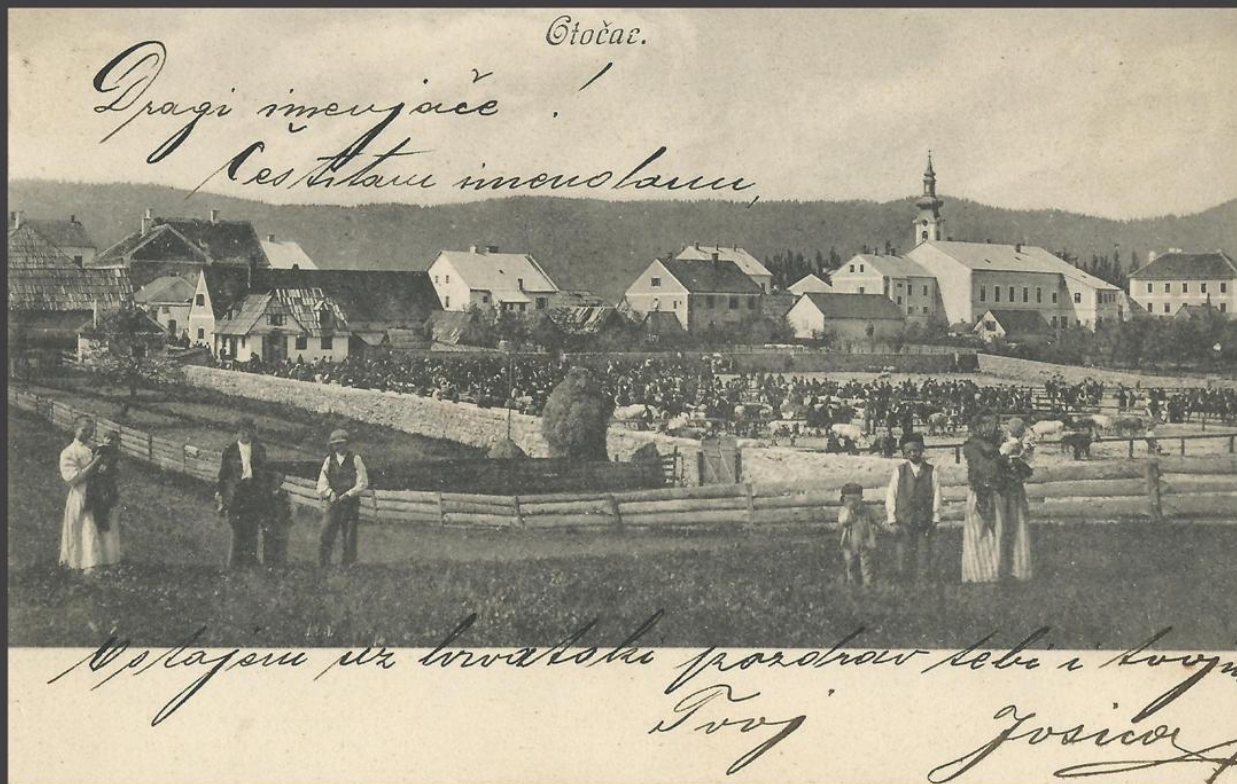 Otočac.
Dragi imenjače !
Čestitam imendan,
Ostajem uz hrvatski pozdrav tebi i
Tvoj Josica